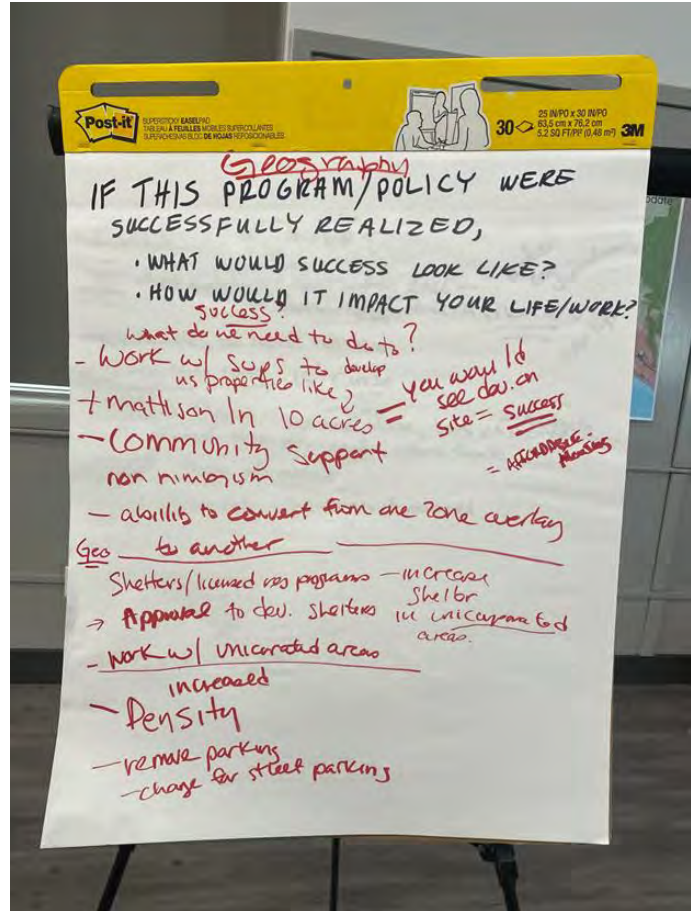 Post-it
SUPERSTICKY EASEL PAD
TABLEAU À FEUILLES MOBILES SUPERCOLLANTES
SUPERADHESIVAS BLOC DE HOJAS REPOSICIONABLES
30
25 IN/PO x 30 IN/PO
63,5 cm x 76,2 cm
5.2 SQ FT/PP (0,48 m²)
3M
Geography
IF THIS PROGRAM/POLICY WERE
SUCCESSFULLY REALIZED,
• WHAT WOULD SUCCESS LOOK LIKE?
• HOW WOULD IT IMPACT YOUR LIFE/WORK?
success?
what do we need to do to?
- Work w/ sups to develop
us properties like
+ mattison ln 10 acres = you would
see dev. on
site = success
= AFFORDABLE
- Community Support
non nimbyism
- ability to convert from one zone overlay
to another
Geo
Shelters/licensed res programs - increase
shelter
in unicorporated
areas.
→ Approval to dev. shelters
- work w/ unicorated areas
increased
- Density
- remove parking
- charge for street parking